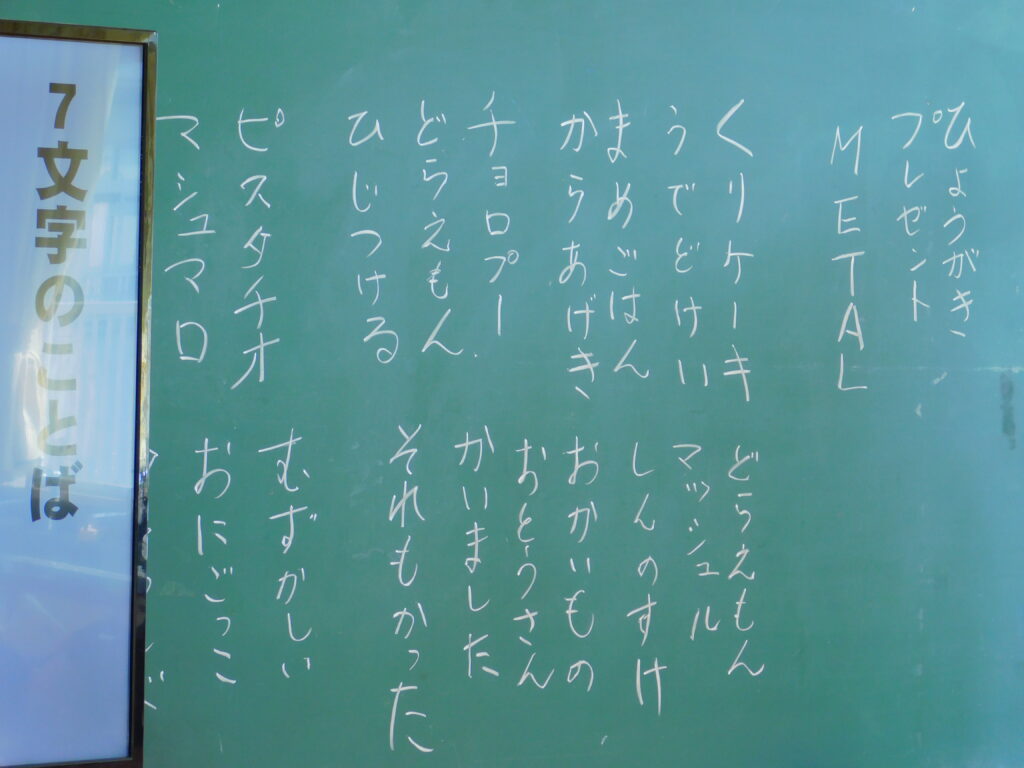 ひょうがき
プレゼント
METAL
くりケーキ
うでどけい
まめごはん
からあげき
チョロプー
どらえもん
ひじつける
ピスタチオ
マシュマロ
どらえもん
マッシュル
しんのすけ
おかいもの
おとうさん
かいました
それもかった
むずかしい
おにごっこ
7文字のことば